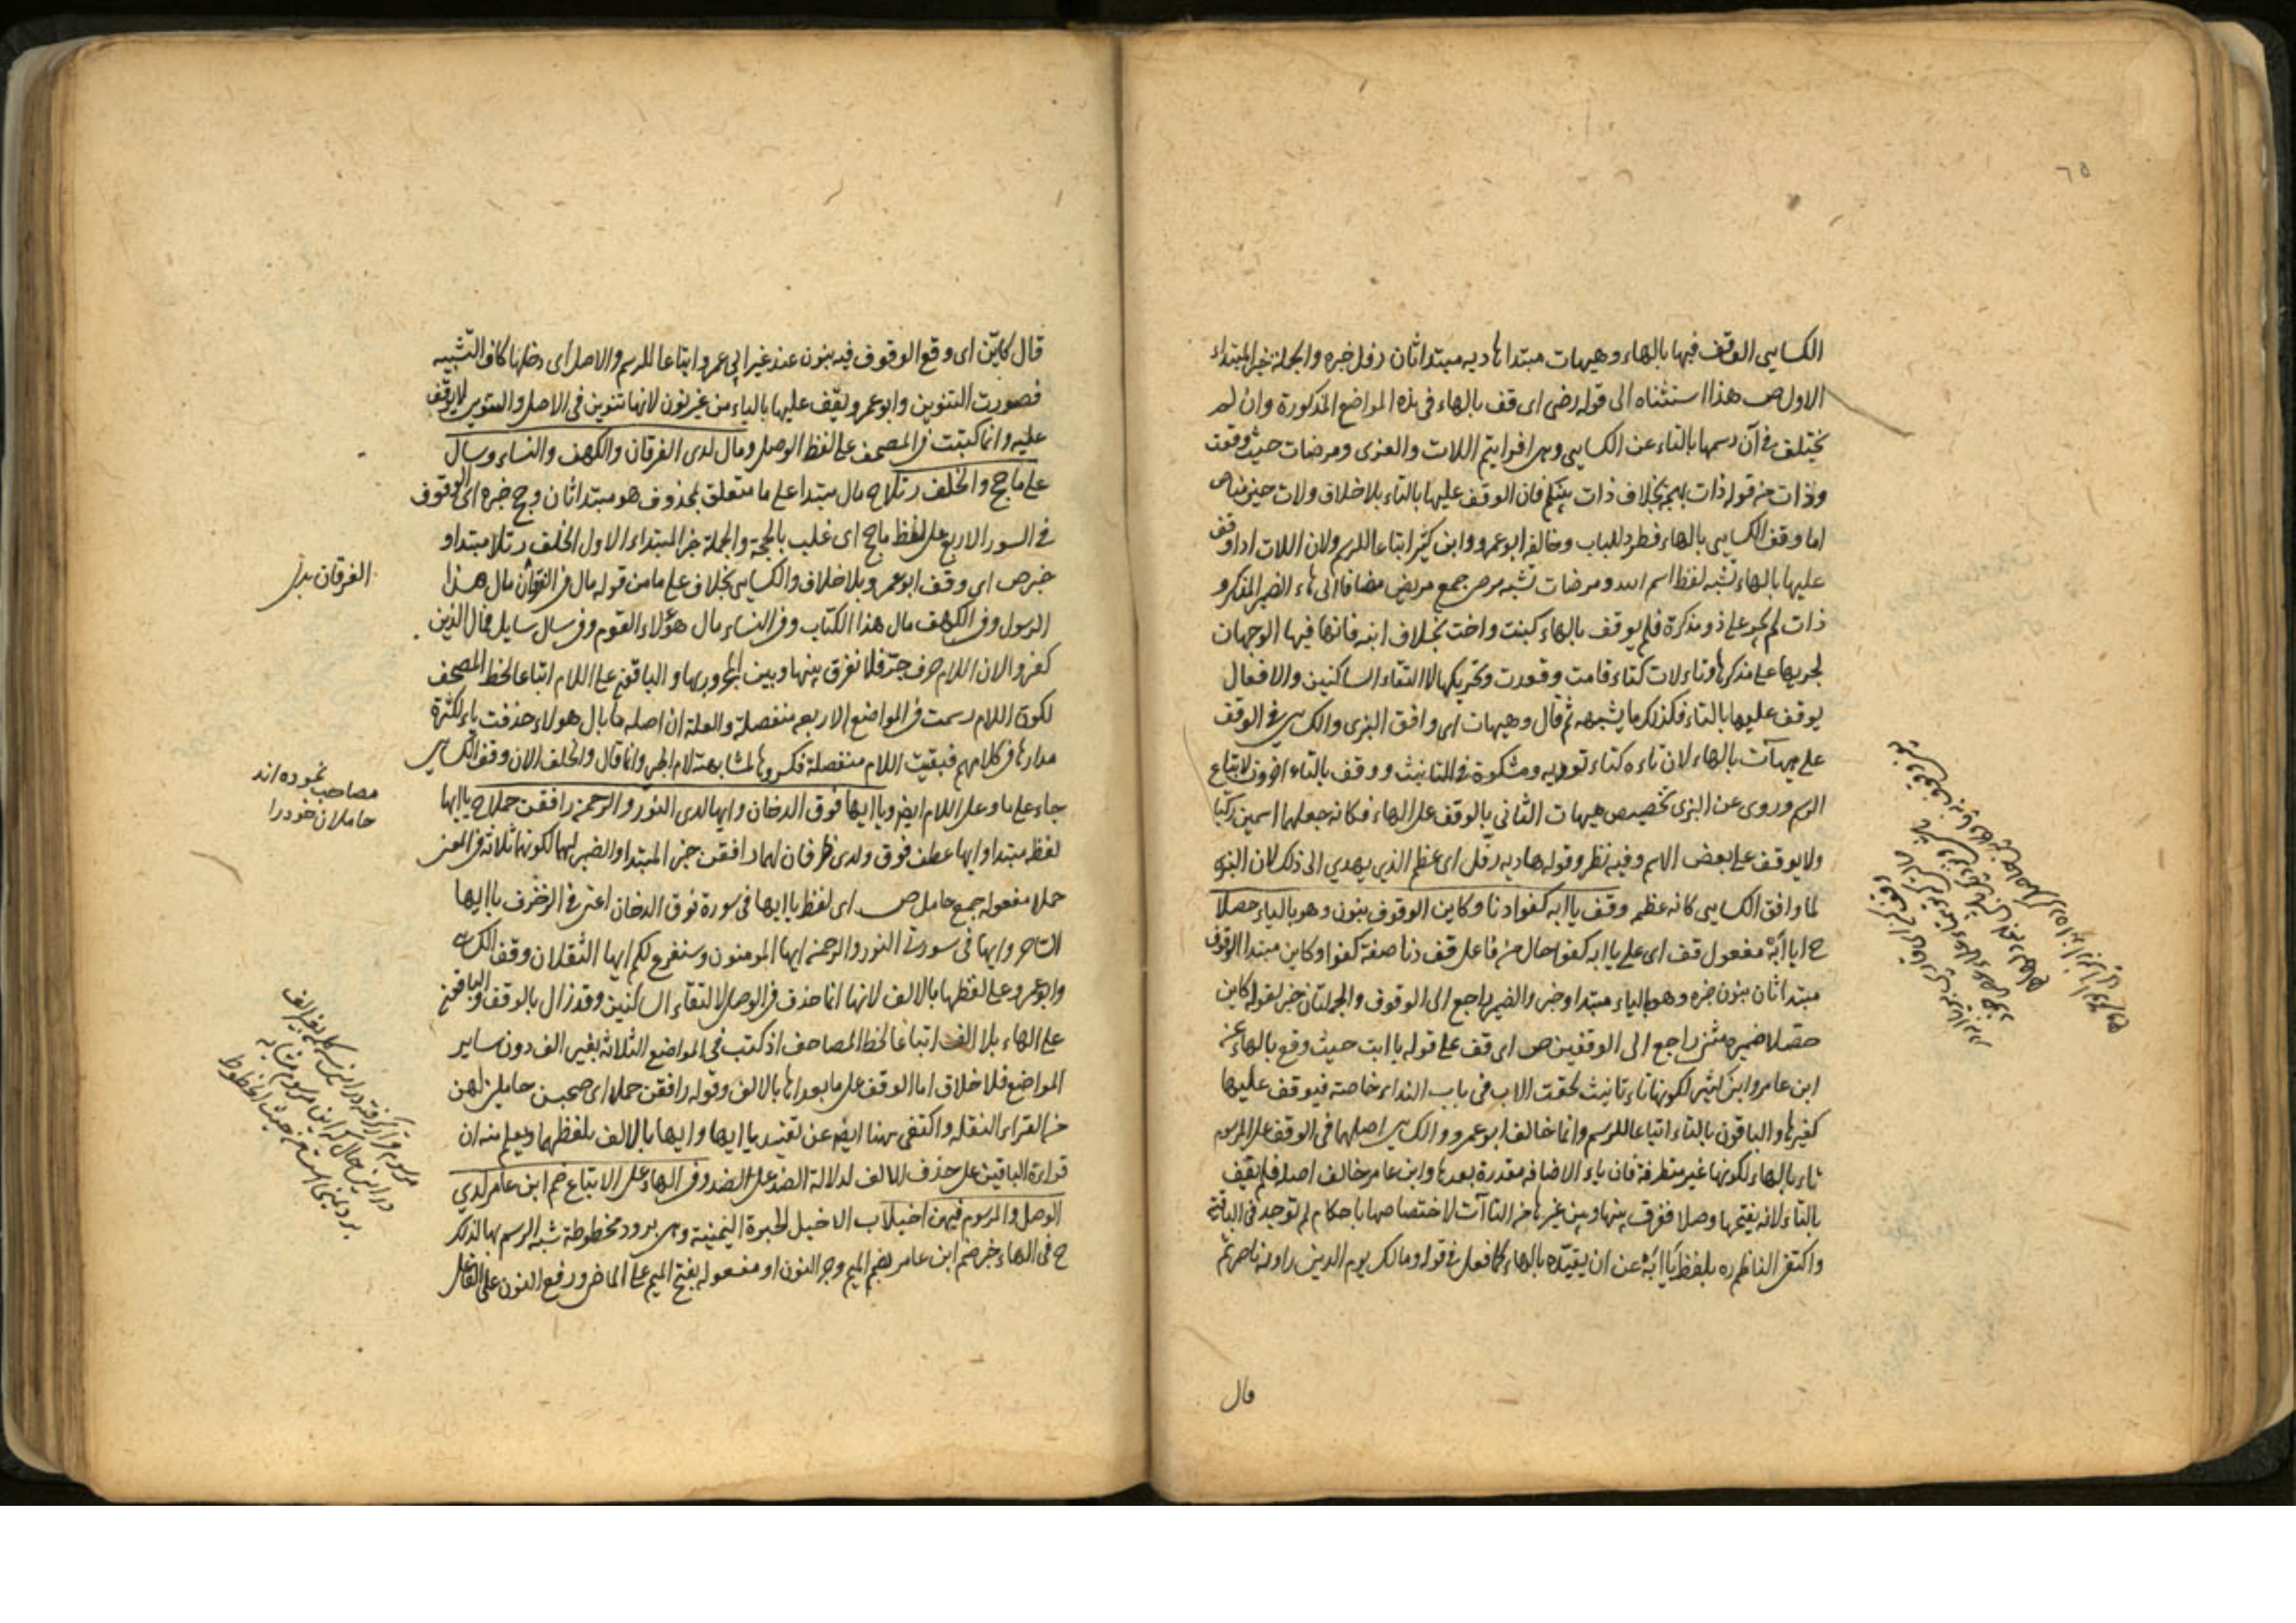 ٦٥
الكسايى الوقف فيها بالهاء وهيهات مبتدا هاديه مبتدا ثان رفل خبره والجملة خبر المبتداء
الاول ص هذا استثناه الى قوله رضى اى قف بالهاء فى هذه المواضع المذكورة وان لم
يختلف فى آن رسمها بالتاء عن الكسايى وهى افرايتم اللات والعزى ومرضات حيث وقعت
وذات من قوله ذات بهجة بخلاف ذات بينكم فان الوقف عليها بالتاء بلا خلاف ولات حين مناص
اما وقف الكسايى بالهاء فطرد للباب وخالفه ابو عمرو وابن كثير اتباعا للرسم ولان اللات اذا وقف
عليها بالهاء تشبه لفظ اسم الله ومرضات تشبه مرضى جمع مريض مضافا الى هاء الضمير المذكر و
ذات لم يجر على ذو مذكرة فلم يوقف بالهاء كبنت واخت بخلاف ابنه فانها فيها الوجهان
لجريها على مذكرها وتاء لات كتاء قامت وقعدت وتحريكها لالتقاء الساكنين والافعال
يوقف عليها بالتاء فكذلك ما يشبهه ثم قال وهيهات اى وافق البزى والكسايى فى الوقف
على هيهات بالهاء لان تاءه كتاء توديه ومشكوة فى التانيث ووقف بالتاء اخرون لاتباع
الرسم وروى عن البزى تخصيص هيهات الثانى بالوقف على الهاء فكانه جعلهما اسمين ركبا
ولا يوقف على بعض الاسم وفيه نظر وقوله هاديه رفل اى عظم الذي يهدي الى ذلك لان البزى
لما وافق الكسايى كانه عظم وقف يا ابه كفوا دنا وكاين الوقوف بنون وهو بالياء حصلا
ح ايا ابة مفعول قف اى على يا ابه كفوا حال من فاعل قف دنا صفة كفوا وكاين مبتدا الوقوف
مبتدا ثان بنون خبره وهو بالياء مبتدا وخبر والضمير راجع الى الوقوف والجملتان خبر لقوله كاين
حصلا ضميره مثنى راجع الى الوقفين ص اى قف على قوله يا ابت حيث وقع بالهاء عن
ابن عامر وابن كثير لكونها تاء تانيث لحقت الاب فى باب النداء خاصته فيوقف عليها
كغيرها والباقون بالتاء اتباعا للرسم وانما خالف ابو عمرو والكسايى اصلهما فى الوقف على المرسوم
تاء بالهاء لكونها غير متطرفة فان ياء الاضافه مقدرة بعدها وابن عامر خالف اصله فلم يقف
بالتاء لانه يفتحها وصلا ففرق بينها وبين غيرها من التاآت لاختصاصها باحكام لم توجد فى الباقية
واكتفى الناظم ره بلفظ يا ابة عن ان يقيده بالهاء كما فعل فى قوله ومالك يوم الدين راويه ناصر ثم
قال
قال كاين اى وقع الوقوف فيه بنون عند غير ابى عمرو اتباعا للرسم والاصل اى دخلها كاف التشبيه
فصورت التنوين وابو عمرو يقف عليها بالياء من غير نون لانها تنوين فى الاصل والتنوين لا يوقف
عليه وانما كتبت فى المصحف على لفظ الوصل ومال لدى الفرقان والكهف والنساء وسال
على ما حج والخلف رتلا ح مال مبتدا على ما متعلق بمحذوف هو مبتدا ثان وحج خبره اى الوقوف
فى السور الاربع على لفظ ما حج اى غلب بالحجة والجملة خبر المبتداء الاول الخلف رتلا مبتدا و
خبر ص اى وقف ابو عمرو بلا خلاف والكسايى بخلاف على ما من قوله مال فى الفرقان مال هذا
الرسول وفى الكهف مال هذا الكتاب وفى النساء مال هؤلاء القوم وفى سال سايل فمال الذين
كفروا لان اللام حرف جر فلا نفرق بينها وبين مجرورها والباقون على اللام اتباعا لخط المصحف
لكون اللام رسمت فى المواضع الاربعه منفصلة والعلة ان اصله ما بال هولاء حذفت باء لكثرة
مدارها فى كلامهم فبقيت اللام منفصلة فكسروها لمشابهته لام الجر وانما قال والخلف لان وقف الكسايى
جاء على ما وعلى اللام ايضا ويا ايها فوق الدخان وايها لدى النور والرحمن رافقن حملا ح يا ايها
لفظه مبتدا وايها عطف فوق ولدى ظرفان لهما رافقن خبر المبتدا والضمير لهما لكونهما ثلاثة فى المعنى
حملا مفعوله جمع حامل ص اى لفظ يا ايها فى سورة فوق الدخان اعنى فى الزخرف يا ايها
الساحر وايها فى سورتى النور والرحمن ايها المومنون وسنفرغ لكم ايها الثقلان وقف الكسايى
وابو عمرو على لفظها بالالف لانها انما حذف فى الوصل لالتقاء الساكنين وقد زال بالوقف والباقون
على الهاء بلا الف اتباعا لخط المصاحف اذ كتب فى المواضع الثلاثة بغير الف دون ساير
المواضع فلا خلاف اما الوقف على ما بعداها بالالف وقوله رافقن حملا اى صحبن حاملين لهن
من القراء النقله واكتفى بهنا ايضا عن تقييد يا ايها وايها بالالف بلفظهما ويعلم منه ان
قراءة الباقين على حذف الالف لدلالة الضد على الضد وفى الهاء على الاتباع ضم ابن عامر لدي
الوصل والمرسوم فيهن اخيلا ب الاخيل لحبرة اليمنية وهى برود مخطوطة شبه الرسم بها لذلك
ح فى الهاء خبر ضم ابن عامر بضم الميم وجر النون او مفعوله بفتح الميم على الماضى ورفع النون على الفاعل
الفرقان بدل
مصاحب نموده اند
حاملان خود را